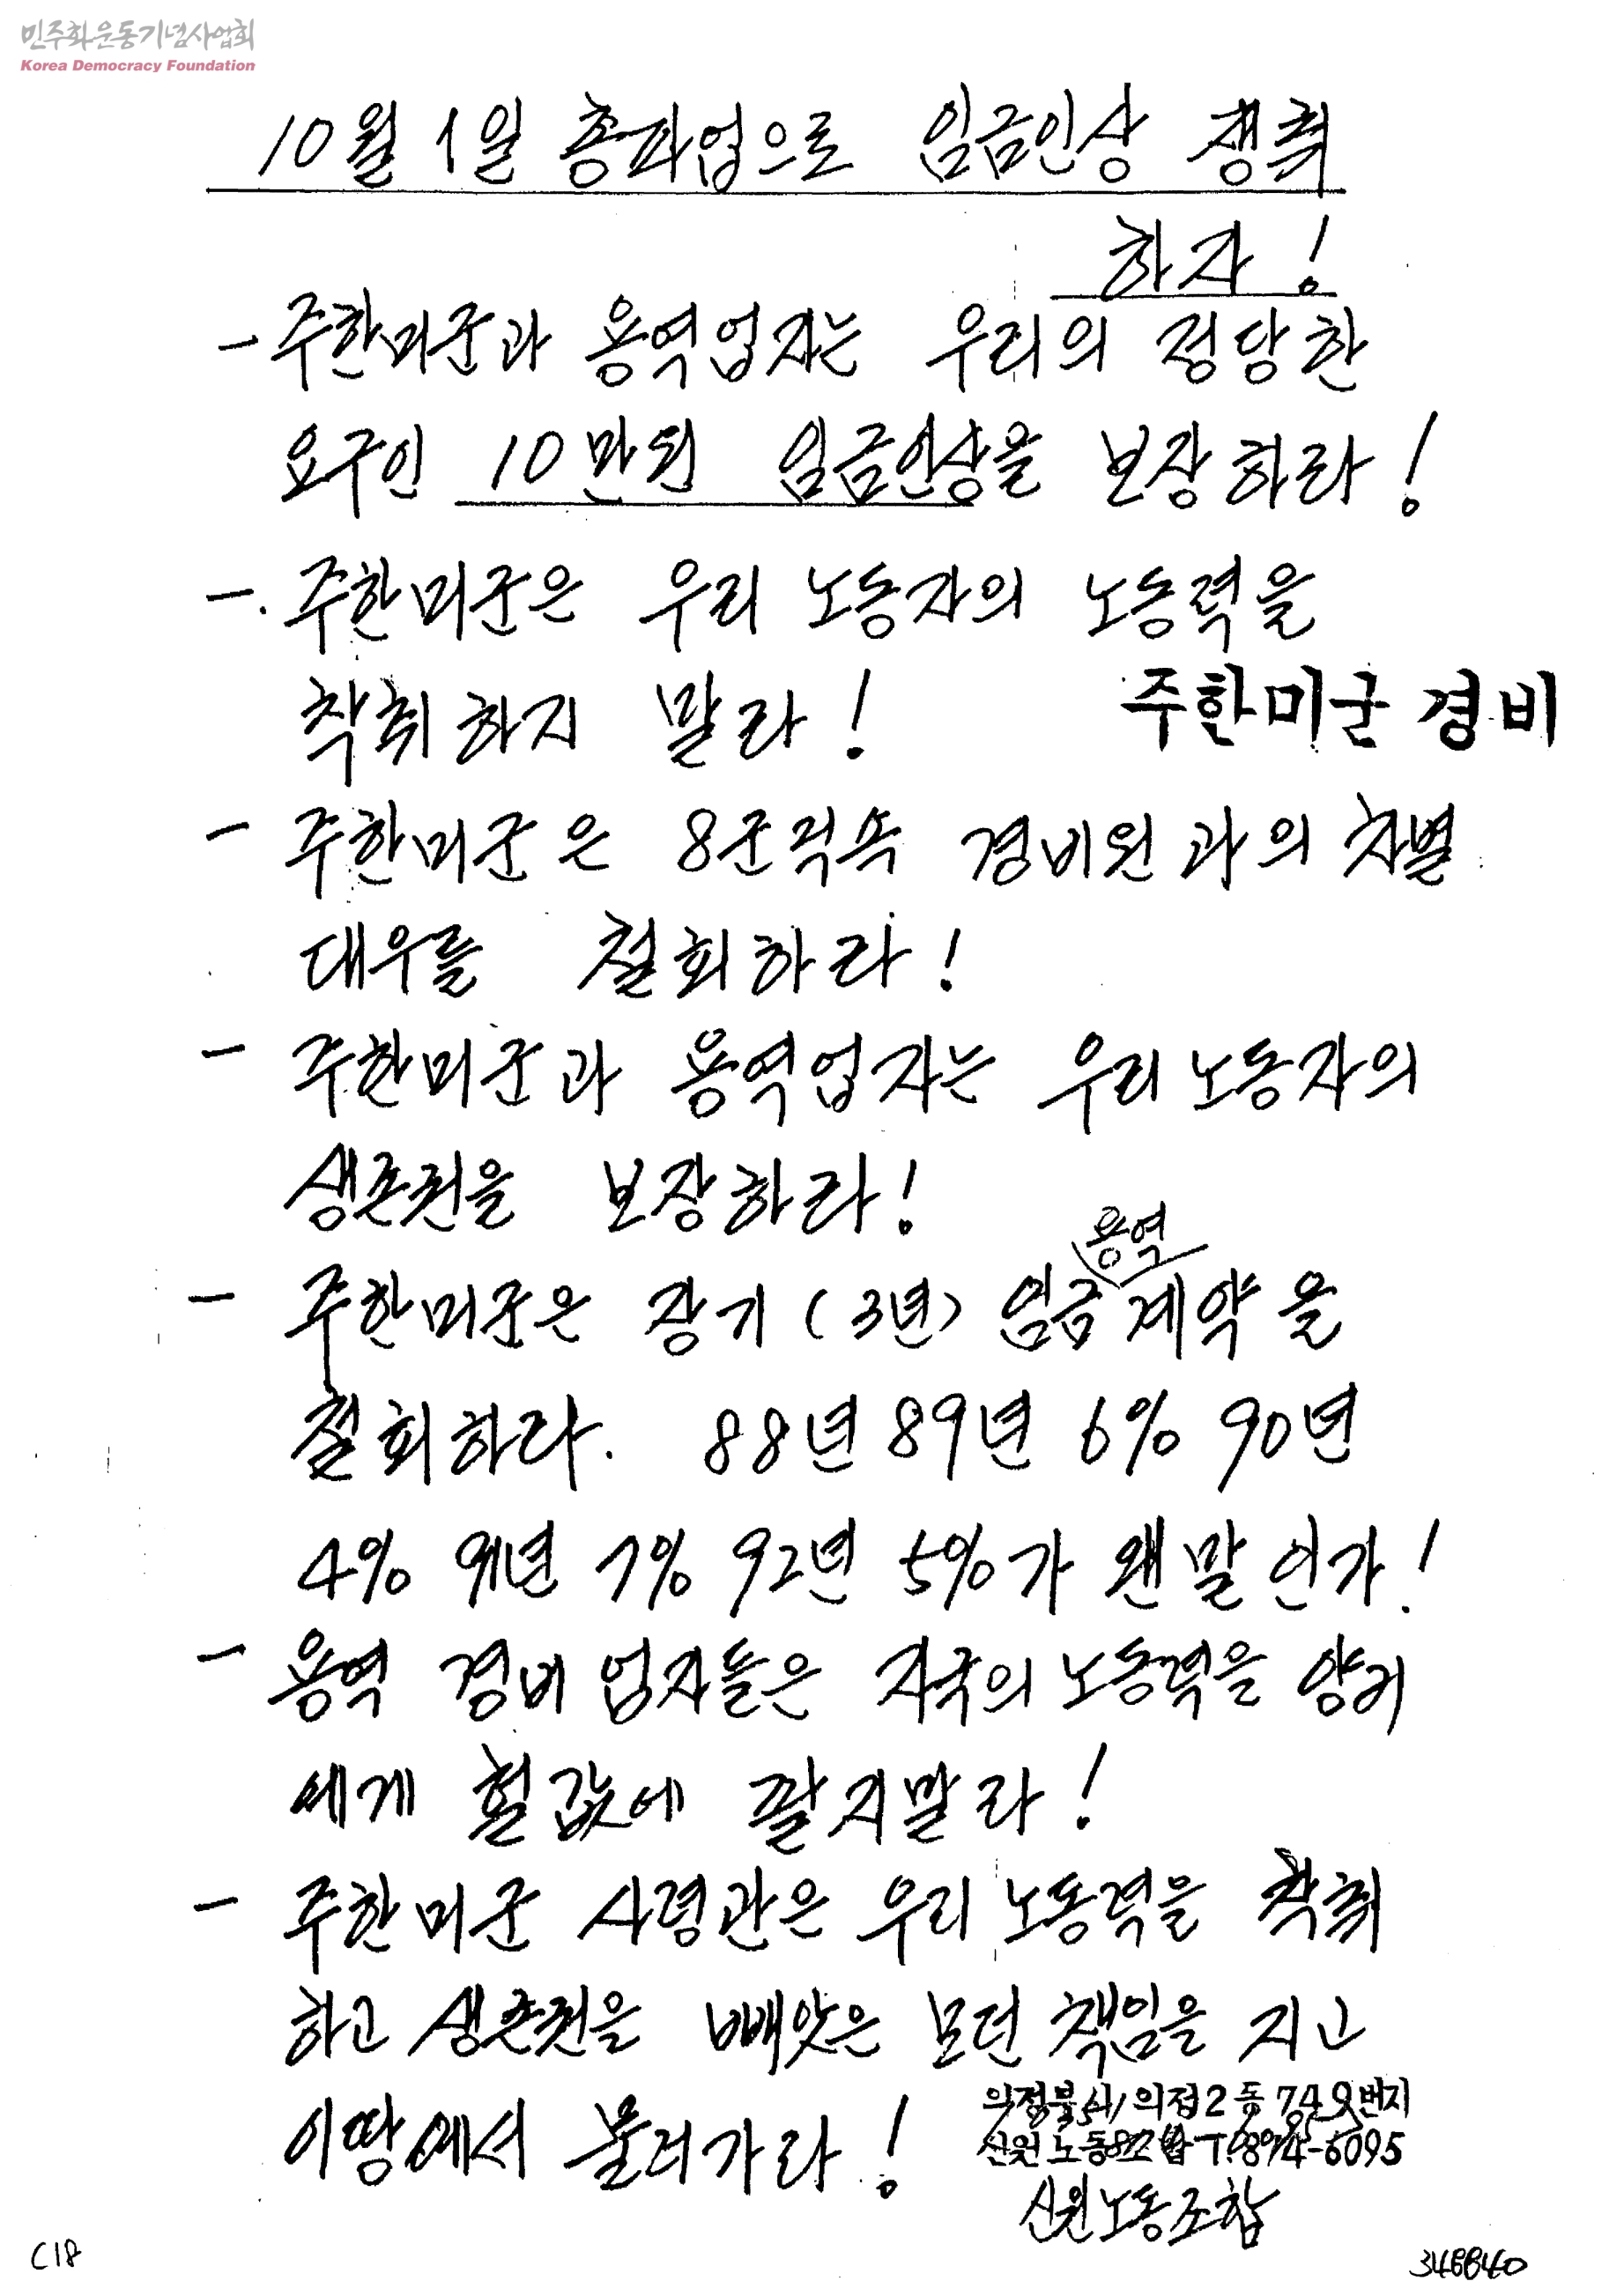 민주화운동기념사업회
Korea Democracy Foundation
10월 1일 총파업으로 임금인상 쟁취
하자!
- 주한미군과 용역업자는 우리의 정당한
요구인 10만원 임금인상을 보장하라!
-. 주한미군은 우리 노동자의 노동력을
착취하지 말라!
주한미군 경비
- 주한미군은 8군직속 경비원과의 차별
대우를 철회하라!
- 주한미군과 용역업자는 우리 노동자의
생존권을 보장하라!
용역
- 주한미군은 장기 (3년) 임금 계약을
철회하라. 88년 89년 6% 90년
4% 91년 7% 92년 5%가 왠말인가!
- 용역 경비 업자들은 자국의 노동력을 양키
에게 헐값에 팔지말라!
- 주한미군 사령관은 우리 노동력을 착취
하고 생존권을 빼앗은 모던 책임을 지고
이땅에서 물러가라!
의정부시 의정2동 749번지
신원노동 T.874-6095
신원노동조합
C18
348840